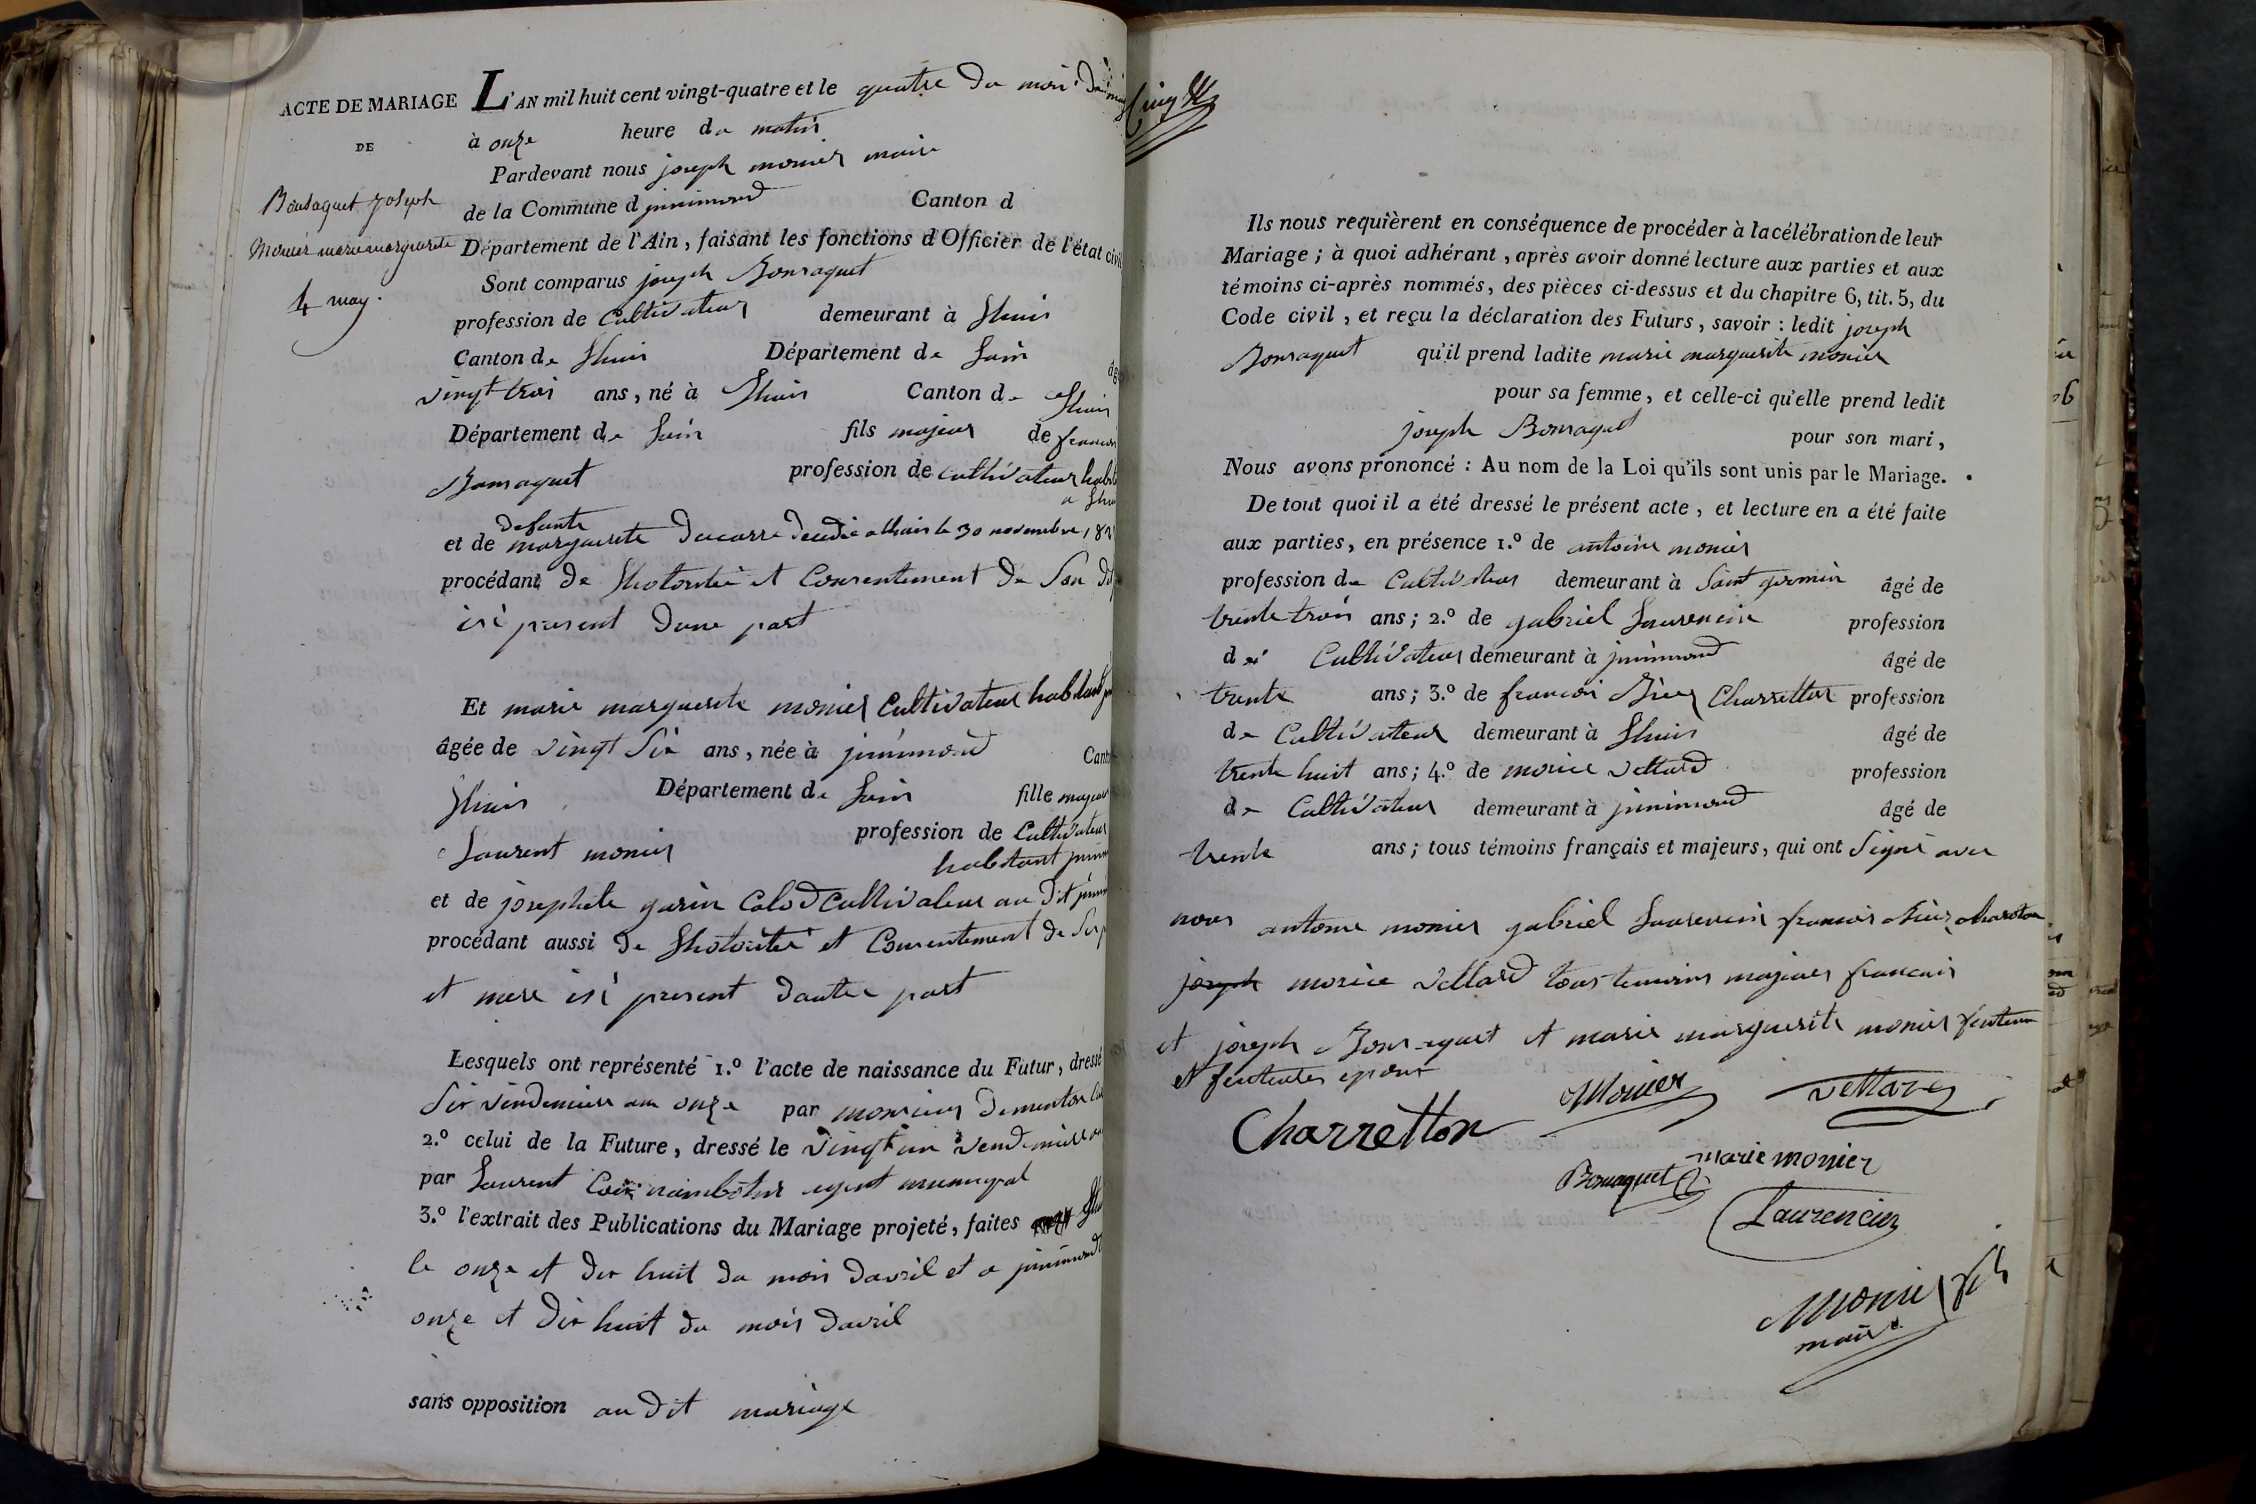 ACTE DE MARIAGE
DE
Bonsaquet Joseph
Monier marie marguerite
4 may.
L'AN mil huit cent vingt-quatre et le quatre du mois de may
à onze heure du matin
Pardevant nous joseph monier maire
de la Commune d jnnimond Canton d
Département de l'Ain, faisant les fonctions d'Officier de l'état civil
Sont comparus joseph Bonsaquet
profession de Cultivateur demeurant à Lhuis
Canton de Lhuis Département de Lain âg
vingt trois ans, né à Lhuis Canton de Lhuis
Département de Lain fils majeur de francois
Bonsaquet profession de Cultivateur habit
a Lhuis
defunte
et de marguerite Ducarre decedée a Lhuis le 30 novembre 182
procédant de Lhotoritée et Consentement de Son dit
isi present dune part
Et marie marguerite monier Cultivateur habitant
âgée de vingt Six ans, née à jnnimond Cant
Lhuis Département de Lain fille majeur
Laurent monier profession de Cultivateur
habitant jnnim
et de josephete garin Calod Cultivateur au dit jnnim
procédant aussi de Lhotoritée et Consentement de Ses p
et mere isi present dautre part
Lesquels ont représenté 1.º l'acte de naissance du Futur, dressé
Six vindemiere an onze par monsieur Dementon
2.º celui de la Future, dressé le vingt un vendemiere an
par Laurent agent municipal
3.º l'extrait des Publications du Mariage projeté, faites Lhuis
le onze et dix huit du mois davril et a jnnimond
onze et dix huit du mois davril
sans opposition au dit mariage
Cinq
Ils nous requièrent en conséquence de procéder à la célébration de leur
Mariage; à quoi adhérant, après avoir donné lecture aux parties et aux
témoins ci-après nommés, des pièces ci-dessus et du chapitre 6, tit. 5, du
Code civil, et reçu la déclaration des Futurs, savoir : ledit joseph
Bonsaquet qu'il prend ladite marie marguerite monier
pour sa femme, et celle-ci qu'elle prend ledit
joseph Bonsaquet pour son mari,
Nous avons prononcé : Au nom de la Loi qu'ils sont unis par le Mariage.
De tout quoi il a été dressé le présent acte, et lecture en a été faite
aux parties, en présence 1.º de antoine monier
profession de Cultivateur demeurant à Saint germain âgé de
trente trois ans; 2.º de gabriel Laurencin profession
de Cultivateur demeurant à jnnimond âgé de
trente ans; 3.º de francois Charretton profession
de Cultivateur demeurant à Lhuis âgé de
trente huit ans; 4.º de morice vettard profession
de Cultivateur demeurant à jnnimond âgé de
trente ans; tous témoins français et majeurs, qui ont Signé avec
nous antoine monier gabriel Laurencin francois charoton
joseph morice vettard tous temoins majeurs francais
et joseph Bonsaquet et marie marguerite monier
et epoux
Charretton
Monier
Vettard
Bonsaquet
marie monier
Laurencin
Monier
maire